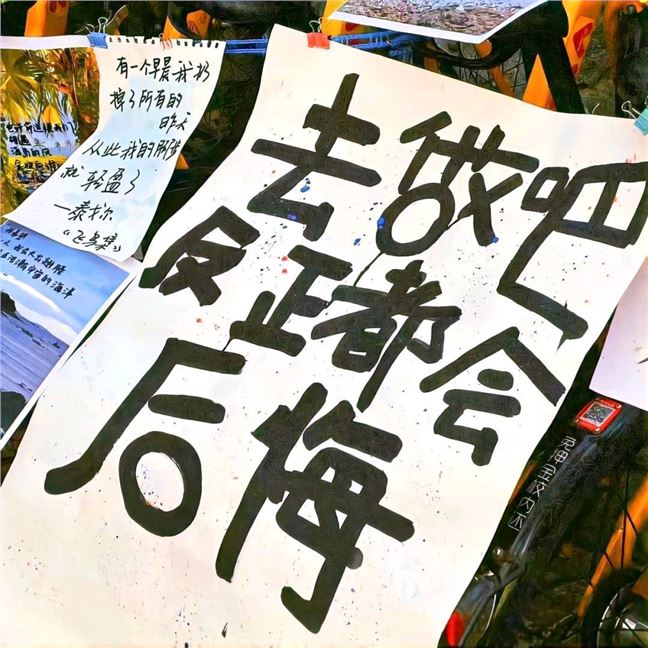 有一个早晨我扔
掉了所有的
昨天
从此我的脚步
就轻盈了
—泰戈尔
《飞鸟集》
去做吧
反正都会
后悔